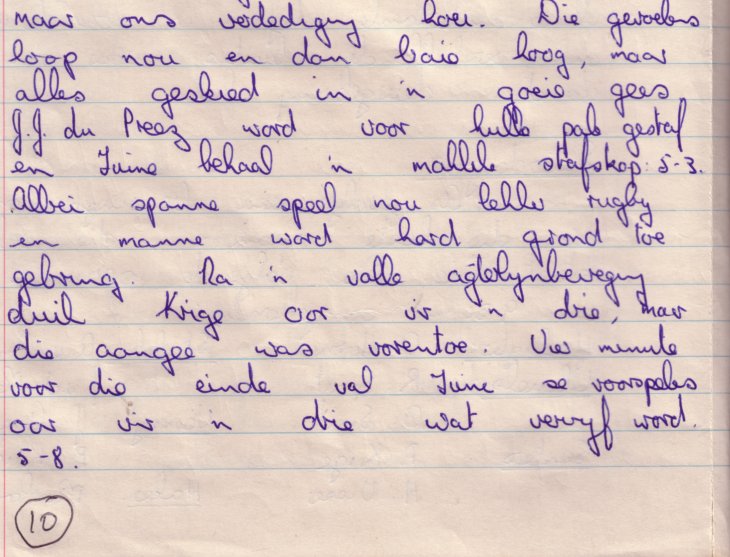 maar ons verdediging hou. Die gevoelens
loop nou en dan baie hoog, maar
alles geskied in 'n goeie gees
J.J. du Preez word voor hulle pale gestraf
en June behaal 'n maklike strafskop: 5-3.
Albei spanne speel nou lekker rugby
en manne word hard grond toe
gebring. Na 'n vlotte agterlynbeweging
duik Krige oor vir 'n drie, maar
die aangee was vorentoe. Vier minute
voor die einde val June se voorspelers
oor vir 'n drie wat vervyf word.
5-8.
10